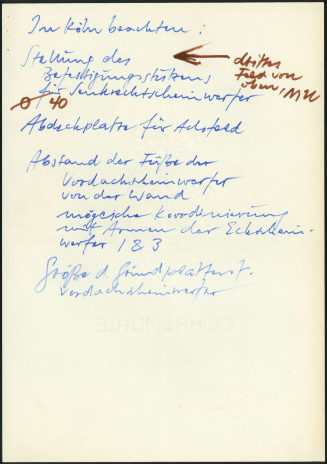 In Köln beachten:
Stellung des
Befestigungsstützens
für Senkrechtscheinwerfer
ø 40
drittes
Feld von
oben, MU
Abdeckplatte für Achsfeld
Abstand der Füße der
Vordachscheinwerfer
von der Wand
mögliche Koordinierung
mit Armen der Eckschein-
werfer 1 & 3
Größe d. Grundplatten f.
Vordachscheinwerfer
GOHRSMÜHLE